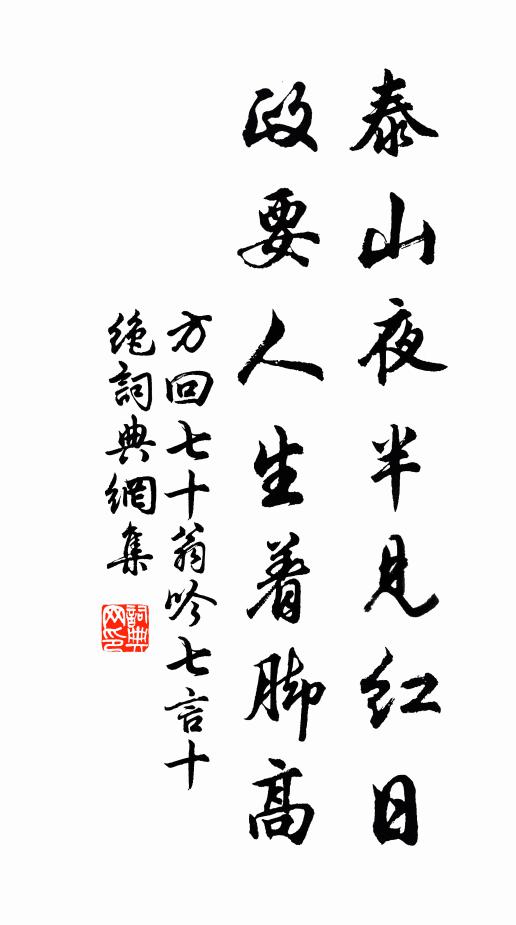 泰山夜半見紅日
政要人生着脚高
方回七十翁吟七言十
絶詞典網集
詞典
网印